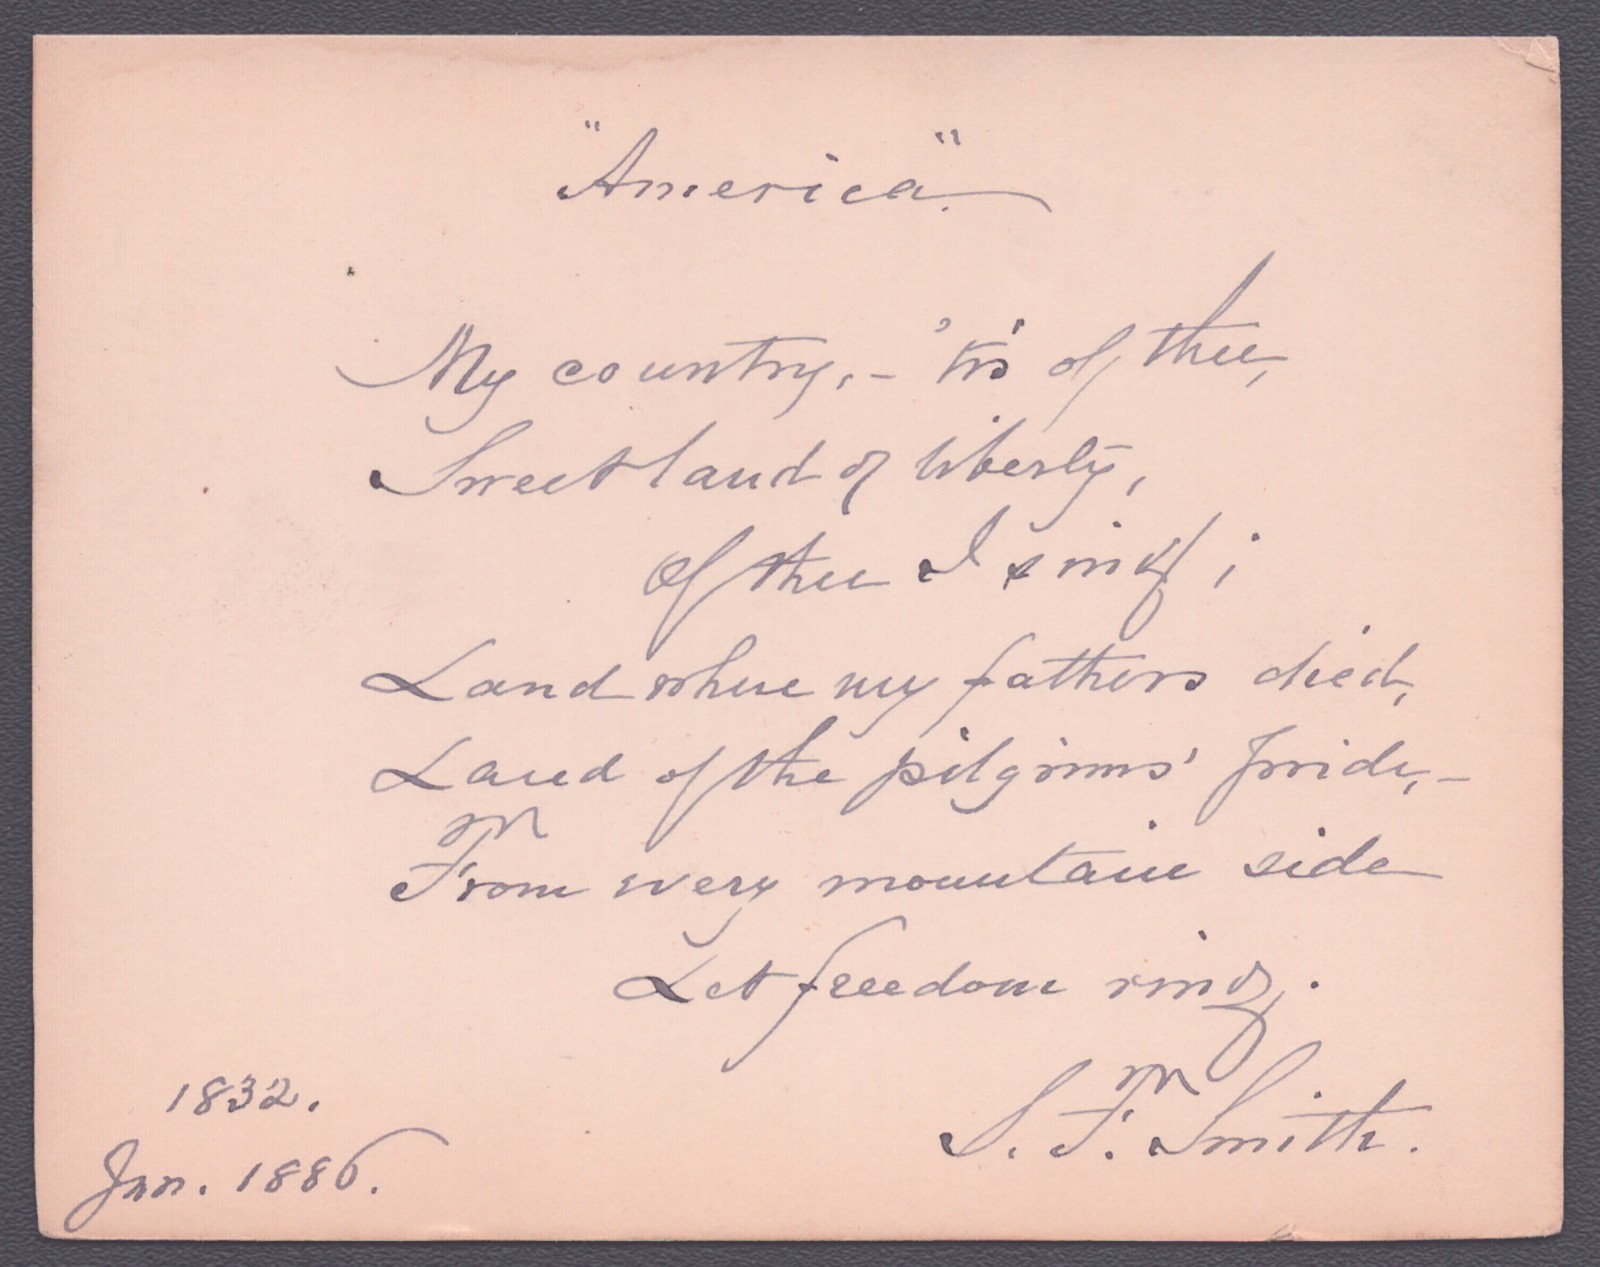 "America".
My country, - 'tis of thee,
Sweet land of liberty,
Of thee I sing;
Land where my fathers died,
Land of the pilgrims' pride, -
From every mountain side
Let freedom ring.
S. F. Smith.
1832.
Jan. 1886.